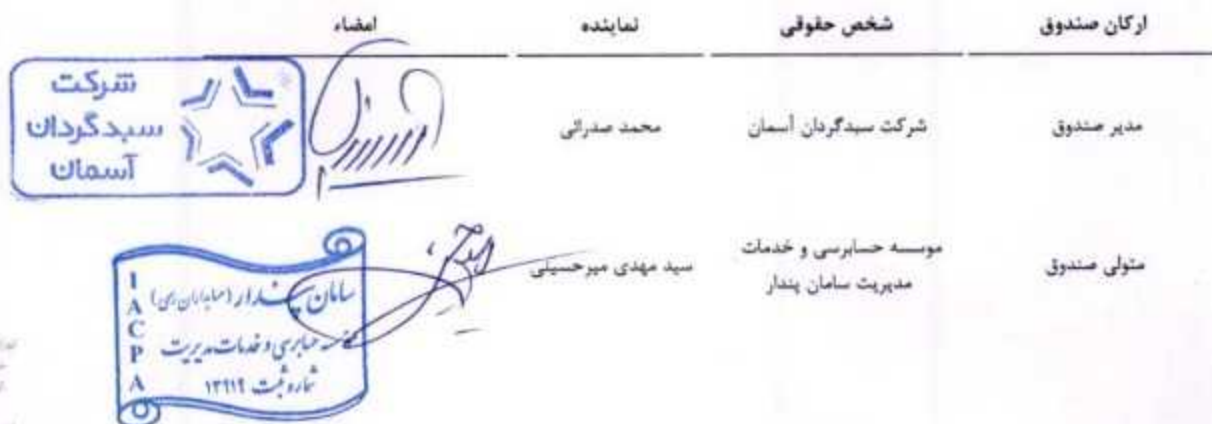 ارکان صندوق شخص حقوقی نماینده امضاء
مدیر صندوق شرکت سبدگردان آسمان محمد صدرائی
شرکت
سبدگردان
آسمان
متولی صندوق موسسه حسابرسی و خدمات مدیریت سامان پندار سید مهدی میرحسینی
IACPA
سامان پندار (حسابداران رسمی)
موسسه حسابرسی و خدمات مدیریت
شماره ثبت ۱۳۹۱۹